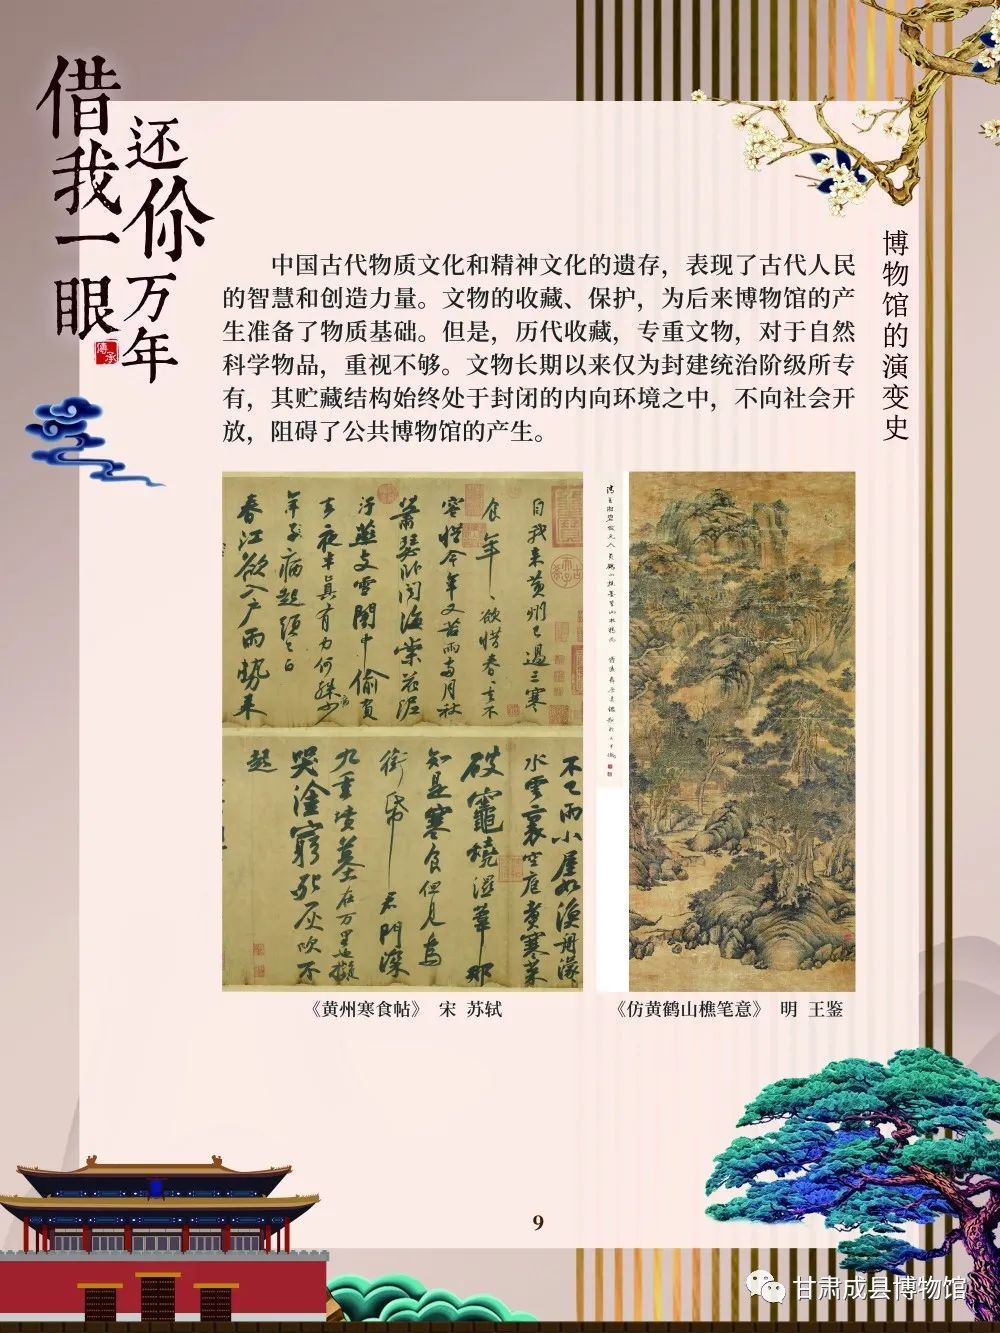 借我一眼
还你万年
傳承
博物馆的演变史
中国古代物质文化和精神文化的遗存，表现了古代人民
的智慧和创造力量。文物的收藏、保护，为后来博物馆的产
生准备了物质基础。但是，历代收藏，专重文物，对于自然
科学物品，重视不够。文物长期以来仅为封建统治阶级所专
有，其贮藏结构始终处于封闭的内向环境之中，不向社会开
放，阻碍了公共博物馆的产生。
自我来黄州已過三寒
食年〻欲惜春〻去不
容惜今年又苦雨兩月秋
蕭瑟卧聞海棠花泥
汙燕支雪闇中偷負
去夜半真有力何殊少
年子病起頭已白
春江欲入户雨勢来
不已雨小屋如漁舟濛〻
水雲裏空庖煮寒菜
破竈燒濕葦那
知是寒食但見烏
銜帋君門深
九重墳墓在万里也擬
哭塗窮死灰吹不
起
《黄州寒食帖》 宋 苏轼
《仿黄鹤山樵笔意》 明 王鉴
9
甘肃成县博物馆